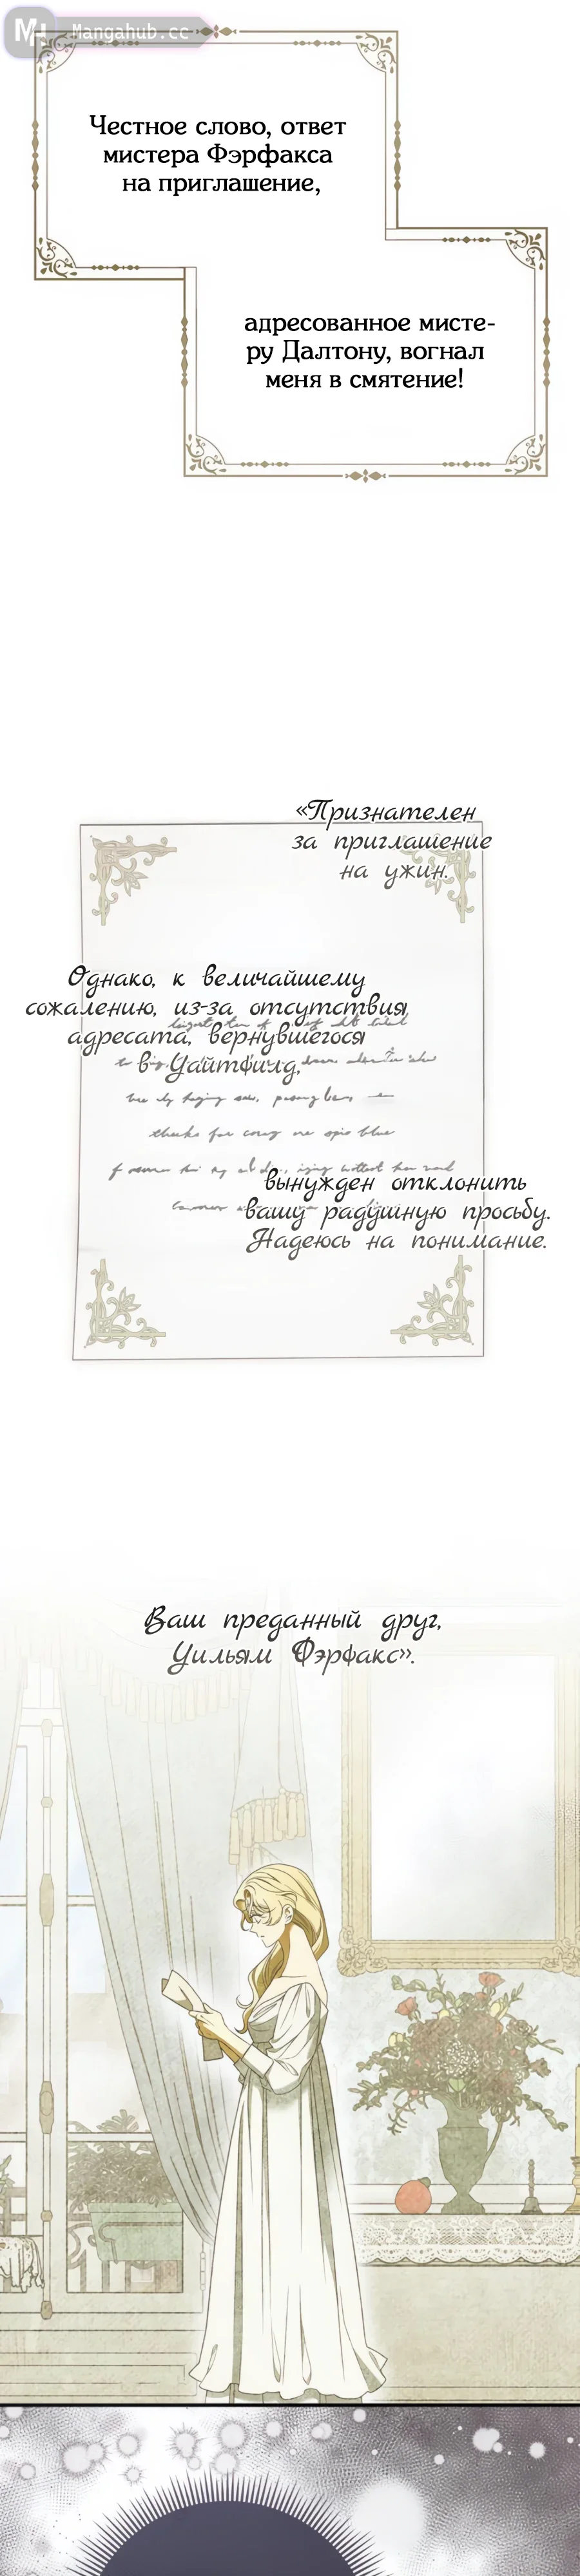 Mangahub.cc
Честное слово, ответ
мистера Фэрфакса
на приглашение,
адресованное мисте-
ру Далтону, вогнал
меня в смятение!
«Признателен
за приглашение
на ужин.
Однако, к величайшему
сожалению, из-за отсутствия
адресата, вернувшегося
в Уайтфилд,
вынужден отклонить
вашу радушную просьбу.
Надеюсь на понимание.
Ваш преданный друг,
Уильям Фэрфакс».